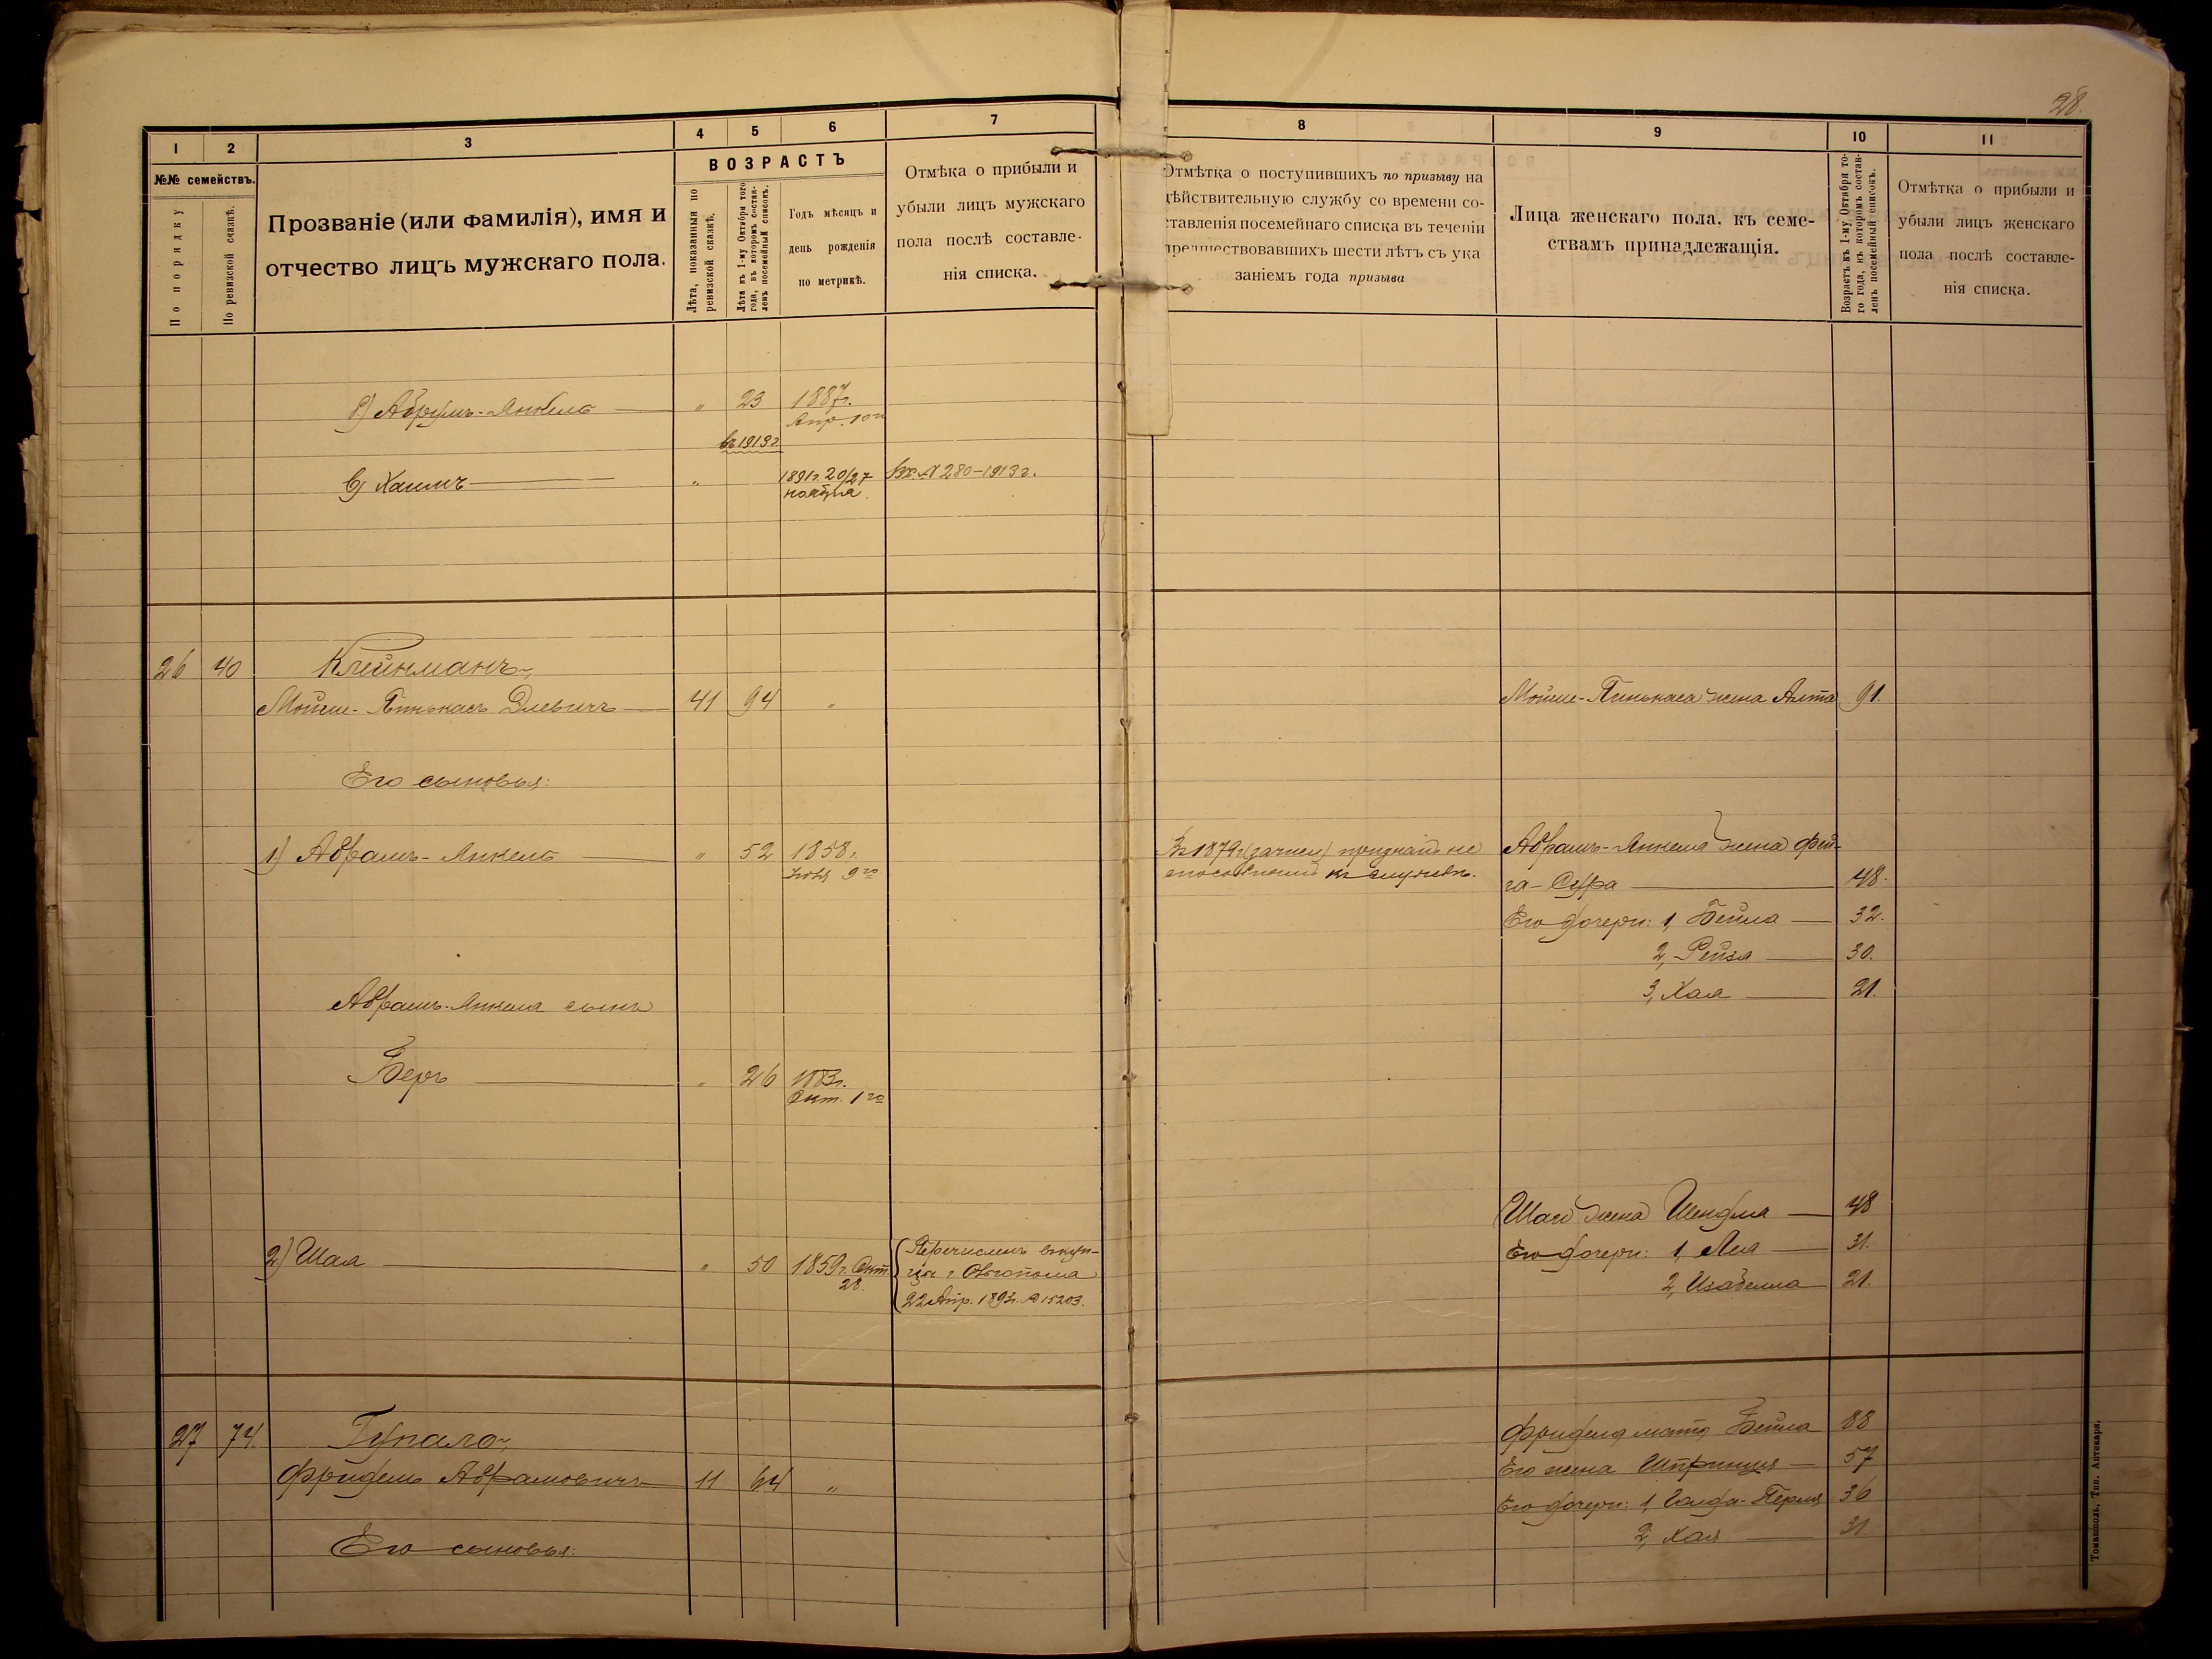 28.
1
2
3
4
5
6
7
8
9
10
11
№№ семействъ.
По порядку
По ревизской сказкѣ.
Прозваніе (или фамилія), имя и
отчество лицъ мужскаго пола.
ВОЗРАСТЪ
Лѣта, показанныя по
ревизской сказкѣ,
Лѣта къ 1-му Октября того
года, въ которомъ состав-
ленъ посемейный списокъ.
Годъ мѣсяцъ и
день рожденія
по метрикѣ.
Отмѣка о прибыли и
убыли лицъ мужскаго
пола послѣ составле-
нія списка.
Отмѣтка о поступившихъ по призыву на
дѣйствительную службу со времени со-
ставленія посемейнаго списка въ теченіи
предшествовавшихъ шести лѣтъ съ ука
заніемъ года призыва
Лица женскаго пола, къ семе-
ствамъ принадлежащія.
Возрастъ къ 1-му Октября то-
го года, въ которомъ состав-
ленъ посемейный списокъ.
Отмѣтка о прибыли и
убыли лицъ женскаго
пола послѣ составле-
нія списка.
Абрумъ-Янкель — " 23 1887г.
Апр. 10го
въ 1913г
в) Хаимъ — " 1891г. 20/27
ноября
Вх. № 280-1913г.
26 40 Клейнманъ,
Мойше-Пинькасъ Элевичъ — 41 94 "
Мойше-Пинькаса жена Алта 91.
Его сыновья:
1) Абрамъ-Янкель — " 52 1858г.
9го
Въ 1879г. признанъ не
способнымъ къ службѣ.
Абрамъ-Янкеля жена Фей-
га-Сура — 48.
Его дочери: 1, Бейла — 32.
2, Рейза — 30.
3, Хая — 21.
Абрамъ-Янкеля сынъ
Беръ — " 26 1883г.
Окт. 1го
Шаи жена Шендля — 48
2) Шая — " 50 1859г. Окт.
28.
Перечисленъ въ куп-
цы г.
22 Апр. 1893г. № 15203.
Его дочери: 1, Лея — 31.
2, Изабелла — 21.
27 74. Гупало,
Фридель Абрамовичъ — 11 64 "
Фриделя мать Бейла 88
Его жена Шпринця — 57
Его дочери: 1, Голда-Перля 36
2, Хая — 31.
Его сыновья:
Томашполь, Тип. Аптекаря.